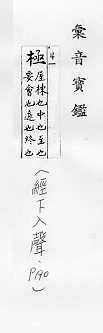 彙音寶鑑
4一
極
屋棟也中也至也
要會也遠也終也
(經下入聲·P190)